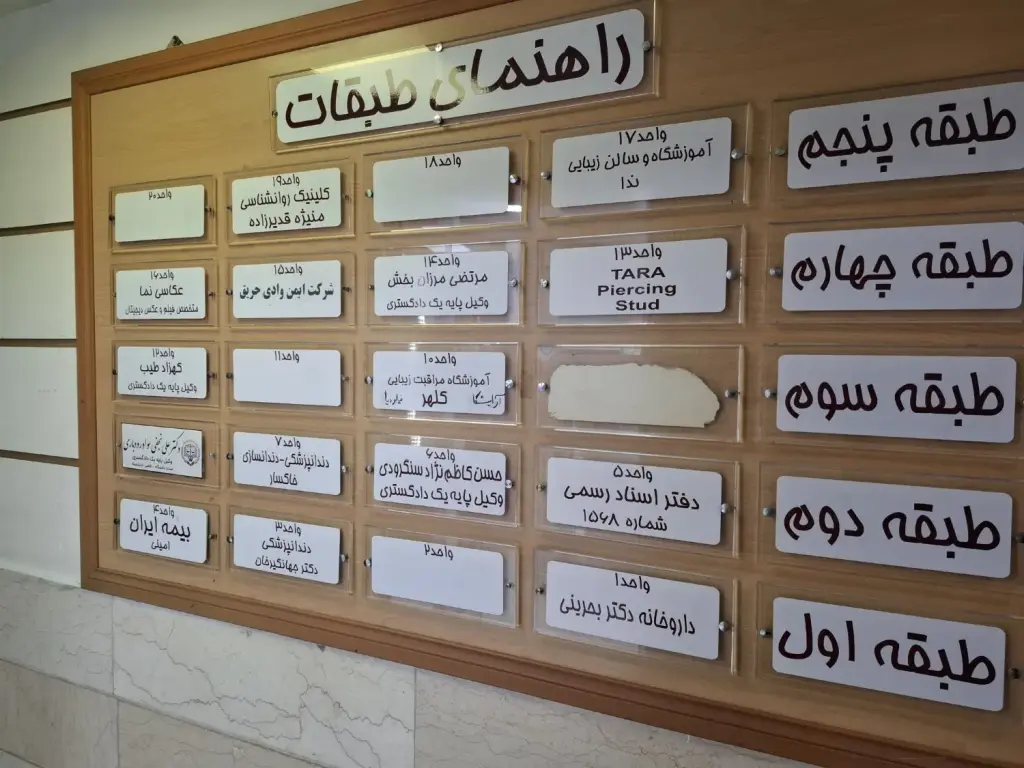 راهنمای طبقات
طبقه پنجم
واحد۱۷
آموزشگاه و سالن زیبایی
ندا
واحد۱۸
واحد۱۹
کلینیک روانشناسی
منیژه قدیرزاده
واحد۲۰
طبقه چهارم
واحد۱۳
TARA
Piercing
Stud
واحد۱۴
مرتضی مرزبان بخش
وکیل پایه یک دادگستری
واحد۱۵
شرکت ایمن وادی حریق
واحد۱۶
عکاسی نما
متخصص فیلم و عکس دیجیتال
طبقه سوم
واحد۱۰
آموزشگاه مراقبت زیبایی
کلهر
واحد۱۱
واحد۱۲
کهزاد طیب
وکیل پایه یک دادگستری
طبقه دوم
واحد۵
دفتر اسناد رسمی
شماره ۱۵۶۸
واحد۶
حسن کاظم نژاد سنگرودی
وکیل پایه یک دادگستری
واحد۷
دندانپزشکی-دندانسازی
خاکسار
دکتر علی
وکیل پایه یک دادگستری
طبقه اول
واحد۱
داروخانه دکتر بحرینی
واحد۲
واحد۳
دندانپزشکی
دکتر جهانگیرخان
واحد۴
بیمه ایران
امینی